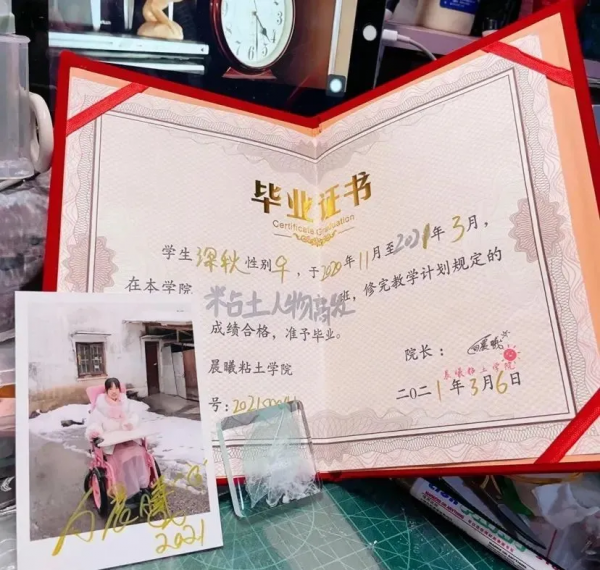 毕业证书
Certificate Graduation
学生深秋性别♀，于2020年11月至2021年3月，
在本学院粘土人物高处班，修完教学计划规定的
成绩合格，准予毕业。
晨曦粘土学院
院长：
晨曦粘土学院
二〇二1年3月6日
号：
2021